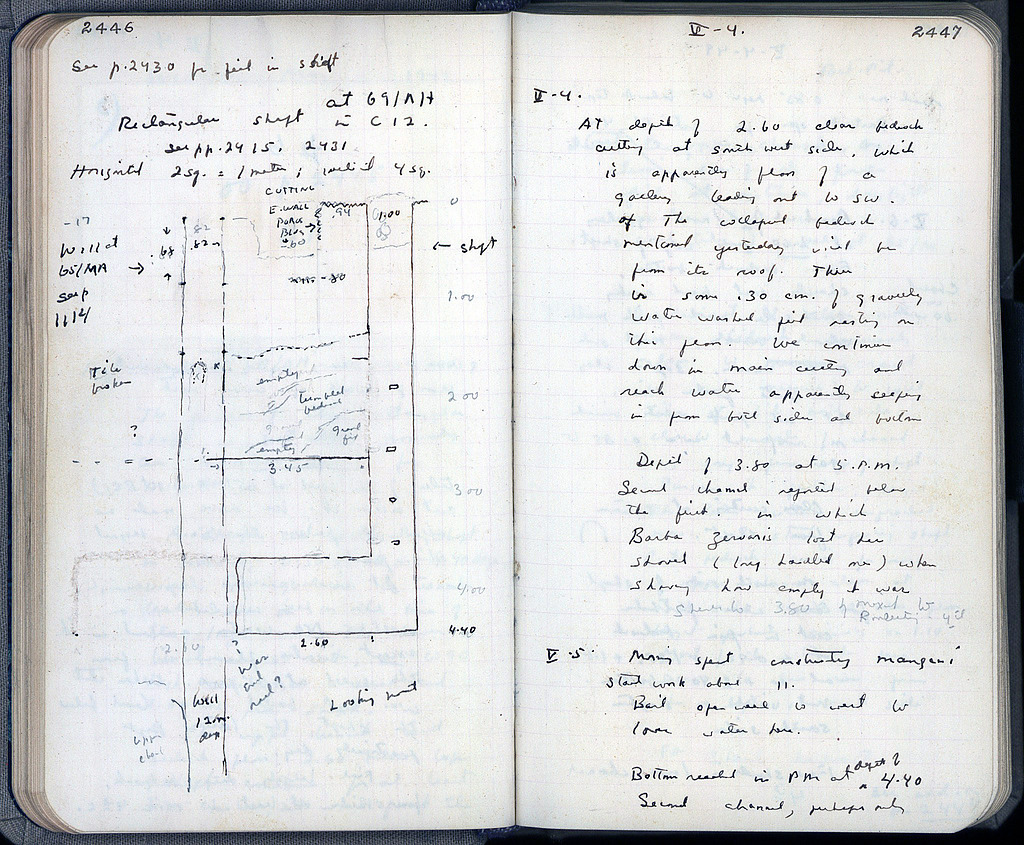 2446
See p.2430 for fill in shaft
at 69/MH
Rectangular shaft in C 12.
see pp. 2415, 2431
Horizontal 2sq. = 1 meter; vertical 4 sq.
CUTTING
E. WALL
PORCH
BLDG
.60
.94
1.00
0
-17
82
.68
.82
← shaft
Well at
65/MA →
see p
1114
- .80
1.00
Tile
broken
empty
2.00
tumbled
bedrock
?
good
fill
empty
3.45
3.00
4.00
4.40
2.60
?
2.60
was
well?
Looking west
Well
12m.
deep
upper
2447
V-4.
V-4.
At depth of 2.60 clear bedrock
cutting at south west side, which
is apparently floor of a
gallery leading out to SW.
Of the collapsed bedrock
mentioned yesterday must be
from its roof. There
is some .30 cm. of gravelly
water washed fill resting on
this floor. We continue
down in main cutting and
reach water apparently seeping
in from both sides at bottom
Depth of 3.80 at 5 P.M.
Second channel reported below
the first in which
Barba Zervaris lost her
shovel (long handled one) when
showing how empty it was
3.80
V-5.
Morn spent constructing mangani
start work about 11.
Bail open well to west to
lower water here.
Bottom reached in PM at depth of 4.40
Second channel, perhaps only